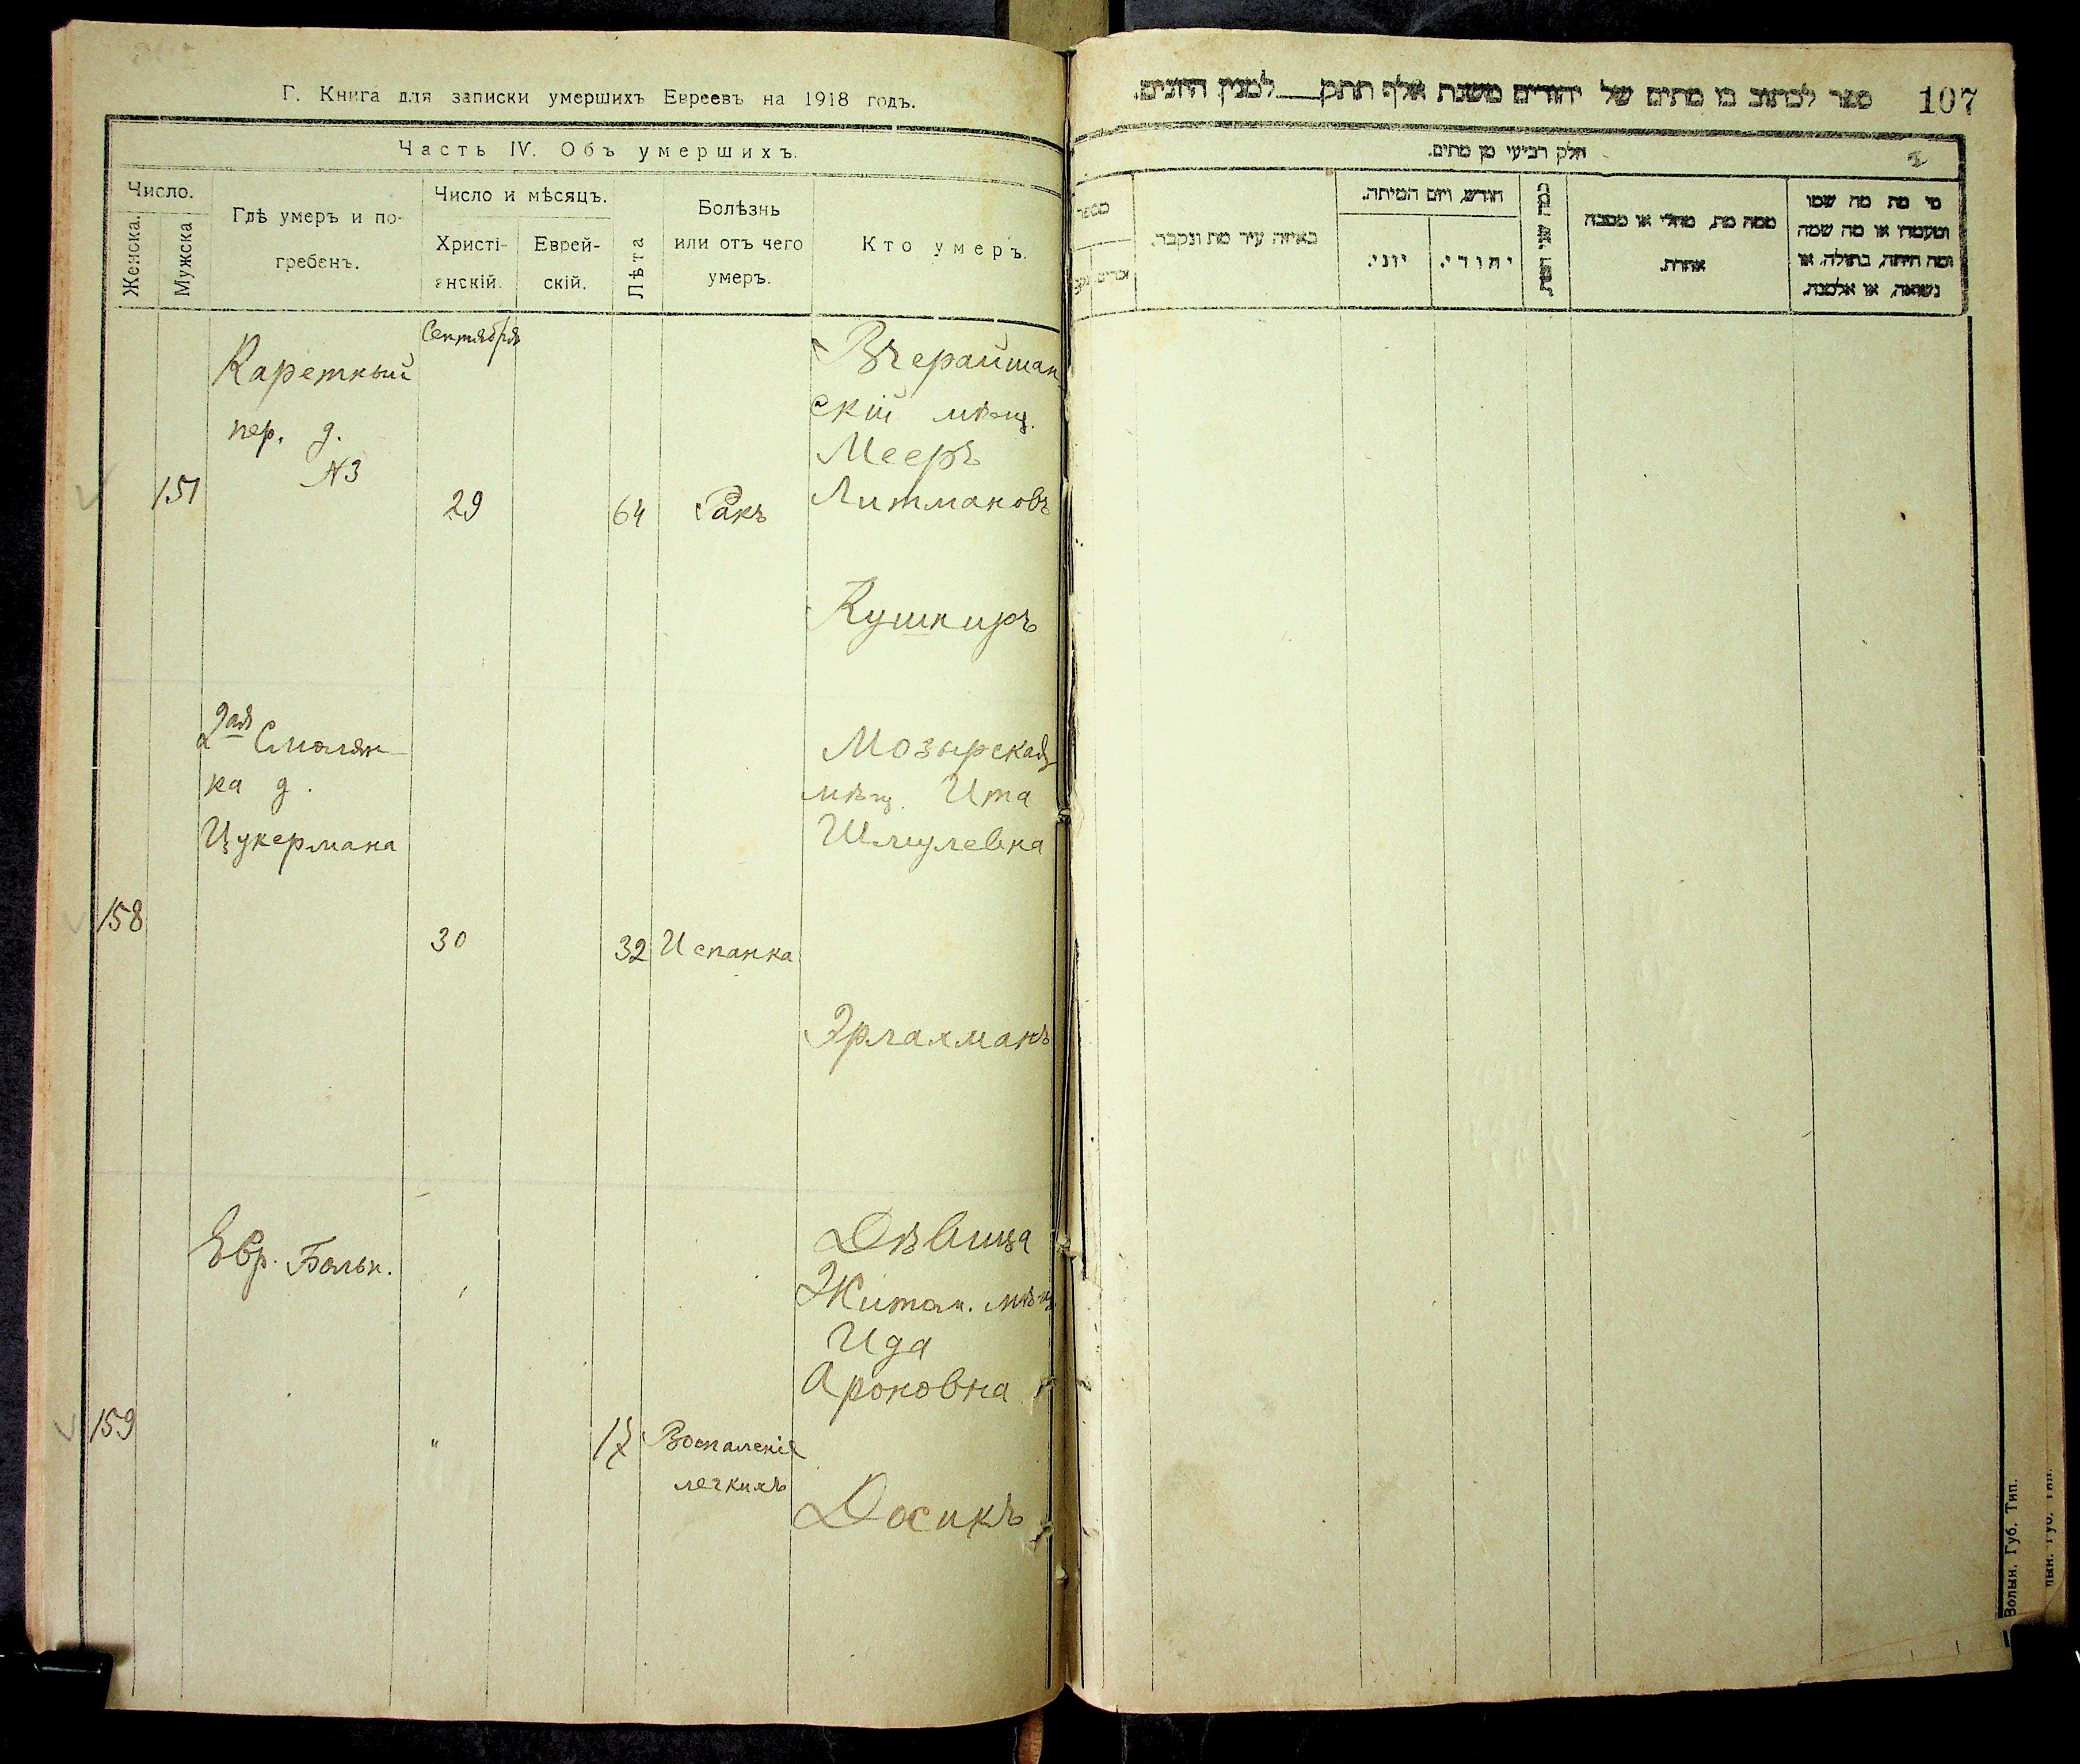 Г. Книга для записки умершихъ Евреевъ на 1918 годъ.
Часть IV. Объ умершихъ.
Число.
Женска.
Мужска
Гдѣ умеръ и по-
гребенъ.
Число и мѣсяцъ.
Христі-
анскій.
Еврей-
скій.
Лѣта
Болѣзнь
или отъ чего
умеръ.
Кто умеръ.
Сентября
Каретный
пер. д.
№3
157
29
64
Ракъ
Вчерайшан
скій мѣщ.
Мееръ
Литмановъ
Кушниръ
2ая Смолян
ка д.
Цукермана
158
30
32
Испанка
Мозырская
мѣщ. Ита
Шмулевна
Эрлахманъ
Евр. Больн.
159
"
17
Воспаленіе
легкихъ
Дѣвица
Житом. мѣщ.
Ида
Ароновна
Досикъ
ספר לכתוב בו מתים של יהודים משנת אלף תתק___למנין היונים.
107
חלק רביעי מן מתים.
מי מת מה שמו
ומעמדו או מה שמה
ומה היתה, בתולה, או
נשואה, או אלמנה.
ממה מת, מחלי או מסבה
אחרת.
חודש, ויום המיתה.
יהודי.
יוני.
באיזה עיר מת ונקבר.
מספר
Волын. Губ. Тип.